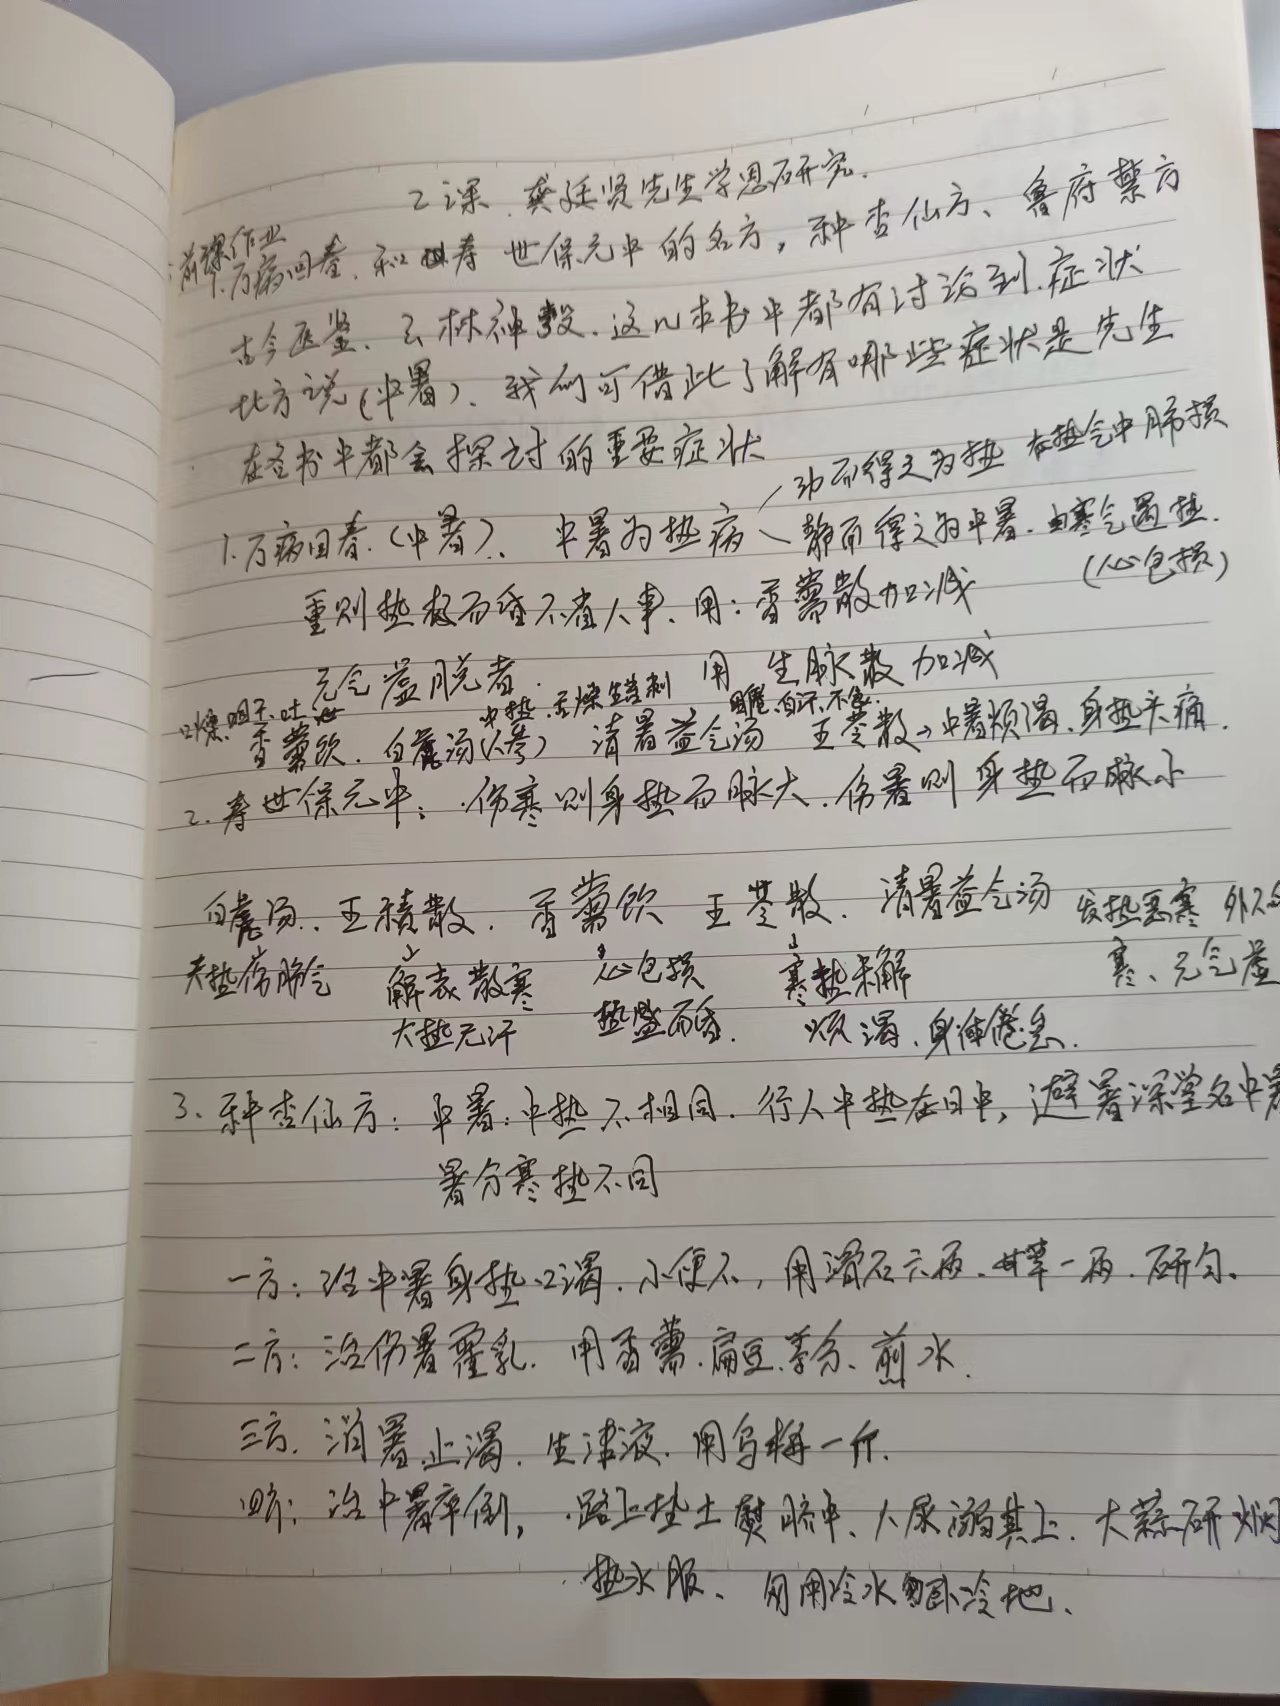 2课. 龚廷贤先生学思研究.
前课作业
1.万病回春. 和 寿世保元中的名方, 种杏仙方、鲁府禁方
古今医鉴、云林神彀. 这几本书中都有讨论到.症状
比方说(中暑)、我们可借此了解有哪些症状是先生
在各书中都会探讨的重要症状
动而得之为热 在热气中肺损
1.万病回春.(中暑)、中暑为热病 静而得之为中暑.由寒气遇热.
(心包损)
重则热极而昏不省人事、用:香薷散加减
元气虚脱者. 用 生脉散加减
口燥.咽干.吐 中热.舌燥生芒刺 自汗.不
香薷饮. 白虎汤(人参) 清暑益气汤 五苓散→中暑烦渴.身热头痛.
2.寿世保元中: 伤寒则身热而脉大.伤暑则身热而脉小
白虎汤. 五积散. 香薷饮 五苓散. 清暑益气汤 发热恶寒
夫热伤肺气 解表散寒 心包损 寒热未解 寒、元气虚
大热无汗 热盛而昏. 烦渴.身体倦怠.
3.种杏仙方: 中暑:中热不相同.行人中热在日中,避暑深堂名中暑
暑分寒热不同
一方:治中暑身热口渴.小便不,用滑石六两.甘草一两.研匀.
二方:治伤暑霍乱. 用香薷.扁豆.等分、煎水.
三方.消暑.止渴.生津液.用乌梅一斤.
四方:治中暑卒倒, 路上热土熨脐中、人尿溺其上.大蒜研烂
热水服、勿用冷水 卧冷地、